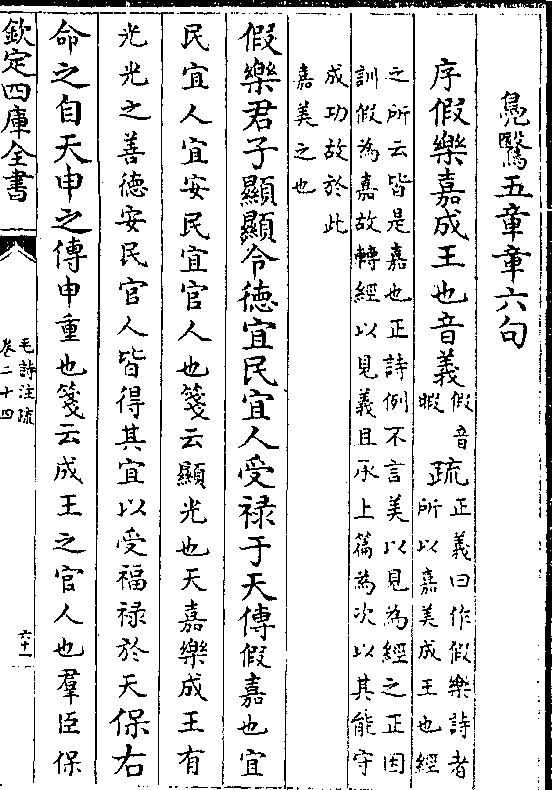 鳧鷖五章章六句
序假樂嘉成王也音義假音暇疏正義曰作假樂詩者所以嘉美成王也經
之所云皆是嘉也正詩例不言美以見為經之正因
訓假為嘉故轉經以見義且承上篇為次以其能守
成功故於此
嘉美之也
假樂君子顯顯令德宜民宜人受祿于天傳假嘉也宜
民宜人宜安民宜官人也箋云顯光也天嘉樂成王有
光光之善德安民官人皆得其宜以受福祿於天保右
命之自天申之傳申重也箋云成王之官人也羣臣保
欽定四庫全書
毛詩注疏
卷二十四
六十一